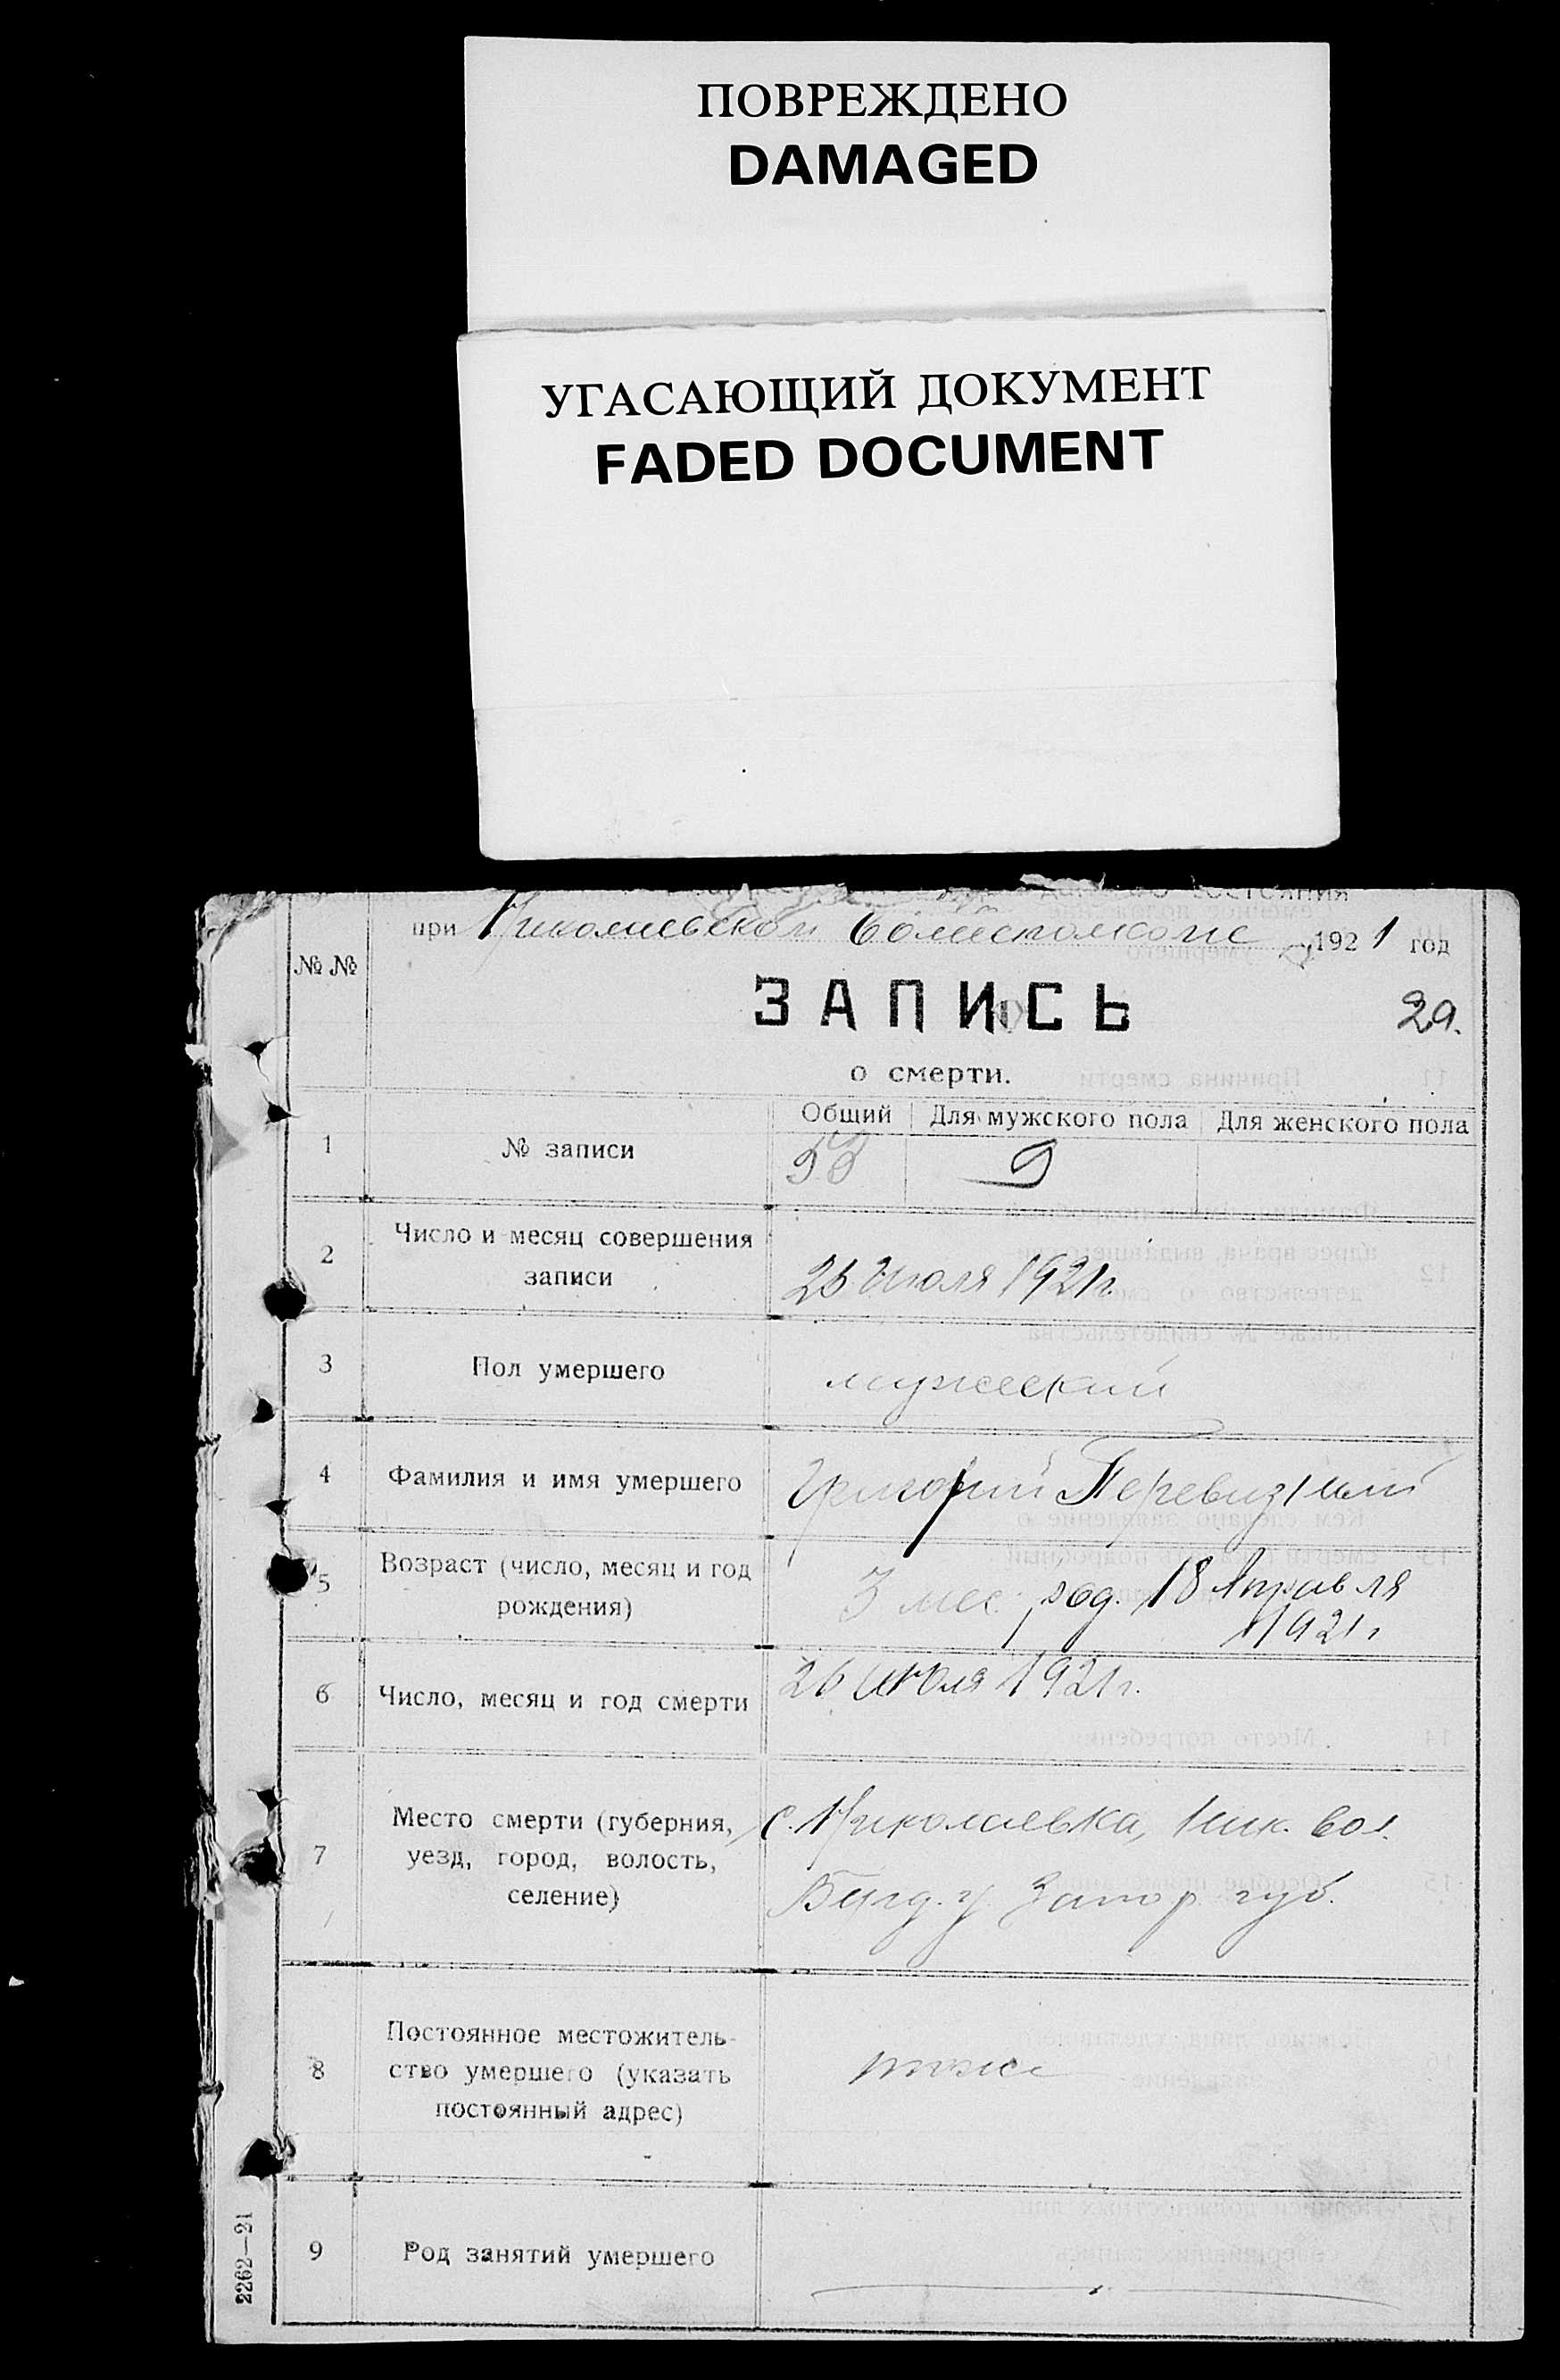 ПОВРЕЖДЕНО
DAMAGED
УГАСАЮЩИЙ ДОКУМЕНТ
FADED DOCUMENT
при Николаевском Волисполкоме 1921 год
№ №
ЗАПИСЬ
29.
о смерти.
Общий Для мужского пола Для женского пола
1 № записи 53 9
2 Число и месяц совершения
записи
26 Июля 1921 г.
3 Пол умершего мужеский
4 Фамилия и имя умершего Григорий
5 Возраст (число, месяц и год
рождения)
3 мес. род. 18 Апреля
1921 г
6 Число, месяц и год смерти 26 июля 1921 г.
7 Место смерти (губерния,
уезд, город, волость,
селение)
с. Николаевка, Ник. вол.
у. Запор. губ.
8 Постоянное местожитель-
ство умершего (указать
постоянный адрес)
тоже
9 Род занятий умершего
2262—21